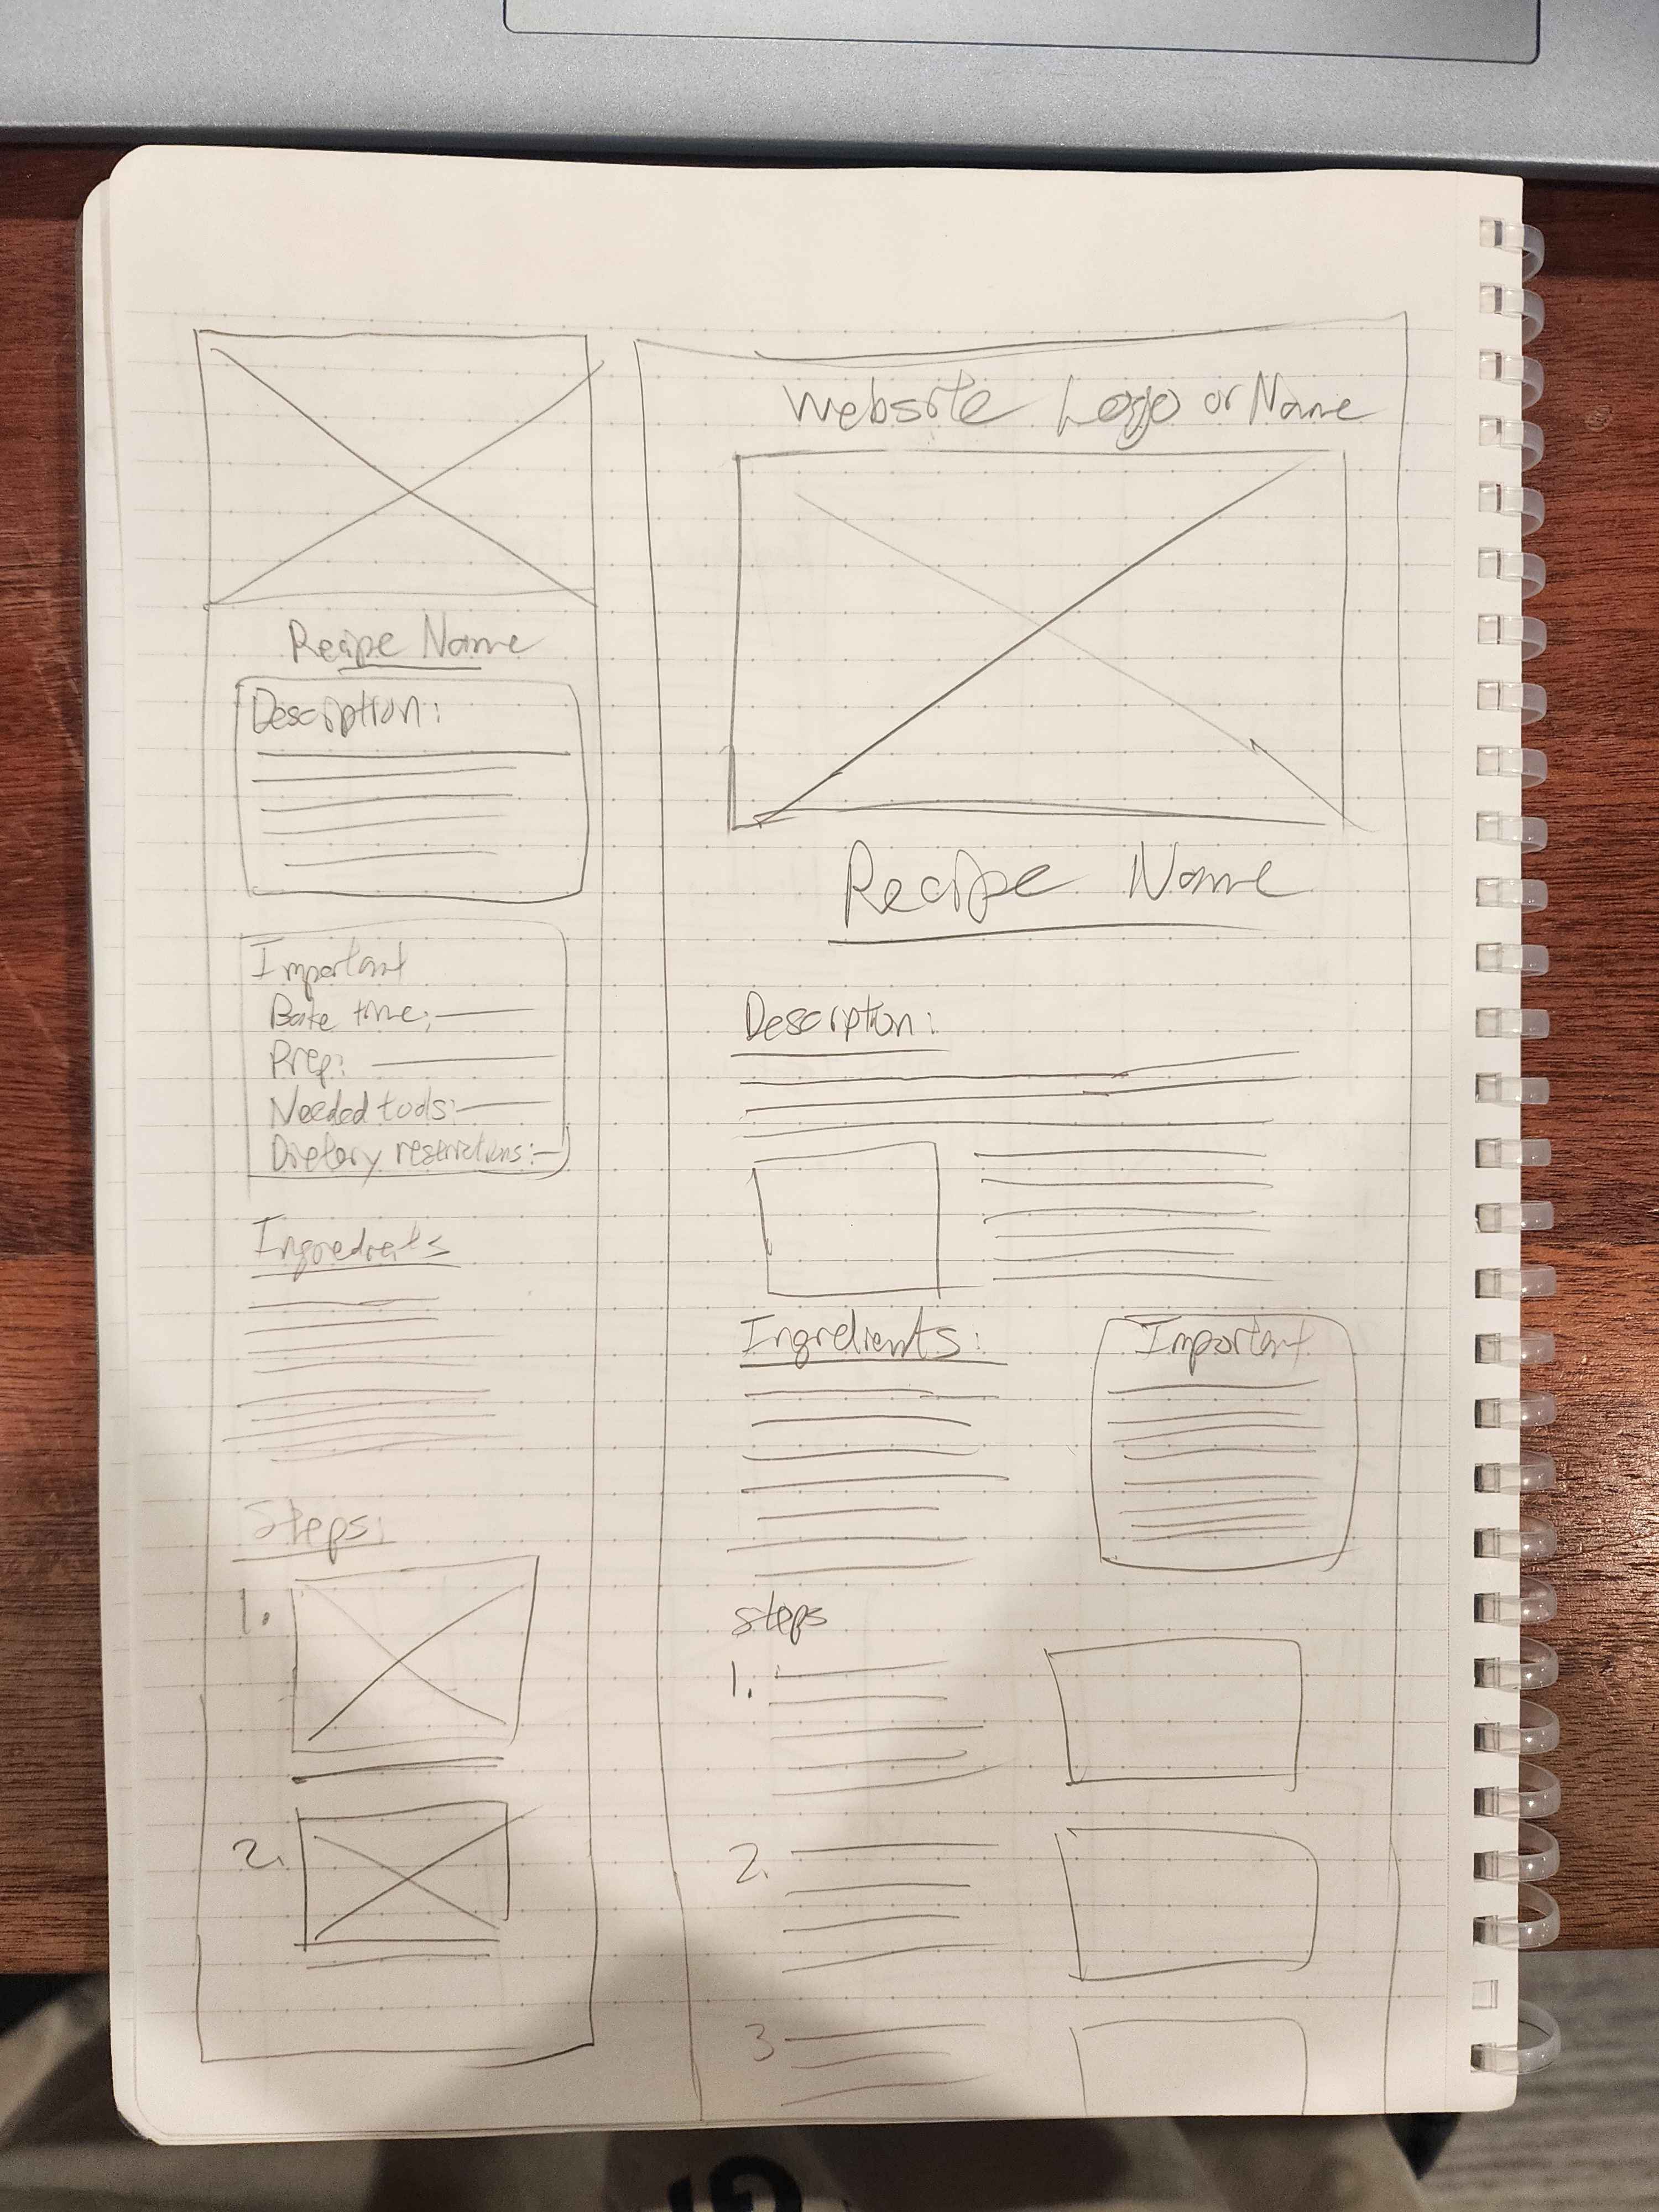 Recipe Name
Description:
Important
Bake time:
Prep:
Needed tools:
Dietary restrictions:
Ingredients
Steps:
1.
2.
Website Logo or Name
Recipe Name
Description:
Ingredients:
Important
Steps
1.
2.
3